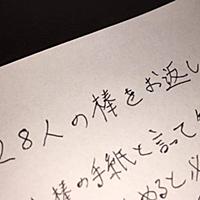 28人の棒をお返し
棒の手紙と言って
めると必